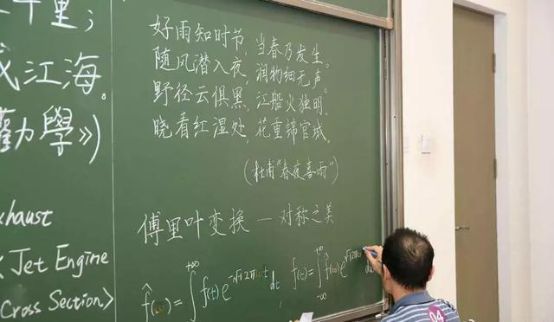 千里；
成江海。
勸學》)
xhaust
<Jet Engine
Cross Section>
好雨知时节，当春乃发生。
随风潜入夜，润物细无声。
野径云俱黑，江船火独明。
晓看红湿处，花重锦官城。
(杜甫"春夜喜雨")
傅里叶变换 — 对称之美
f̂( ) = ∫ f(t) e^{-√-1 2π t} dt f(t) = ∫_{-∞}^{+∞} f̂(ω) e^{√-1 2π
04